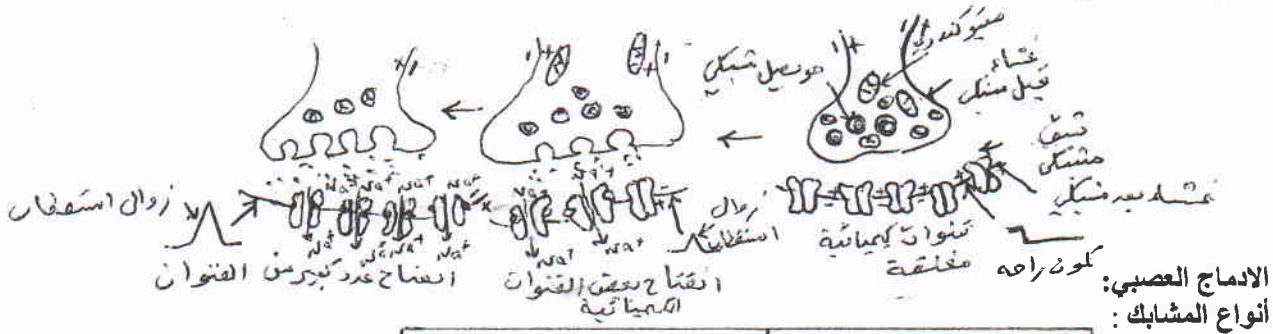 ميتوكندري
غشاء
قبل مشبكي
حويصل مشبكي
شق
مشبكي
غشاء بعد مشبكي
كمون راحة
قنوات كيميائية
مغلقة
زوال
استقطاب
انفتاح بعض القنوات
الكيميائية
Na+ Na+
Na+ Na+
زوال استقطاب
انفتاح عدد كبير من القنوات
Na+ Na+ Na+ Na+
Na+ Na+ Na+ Na+
الادماج العصبي:
أنواع المشابك :